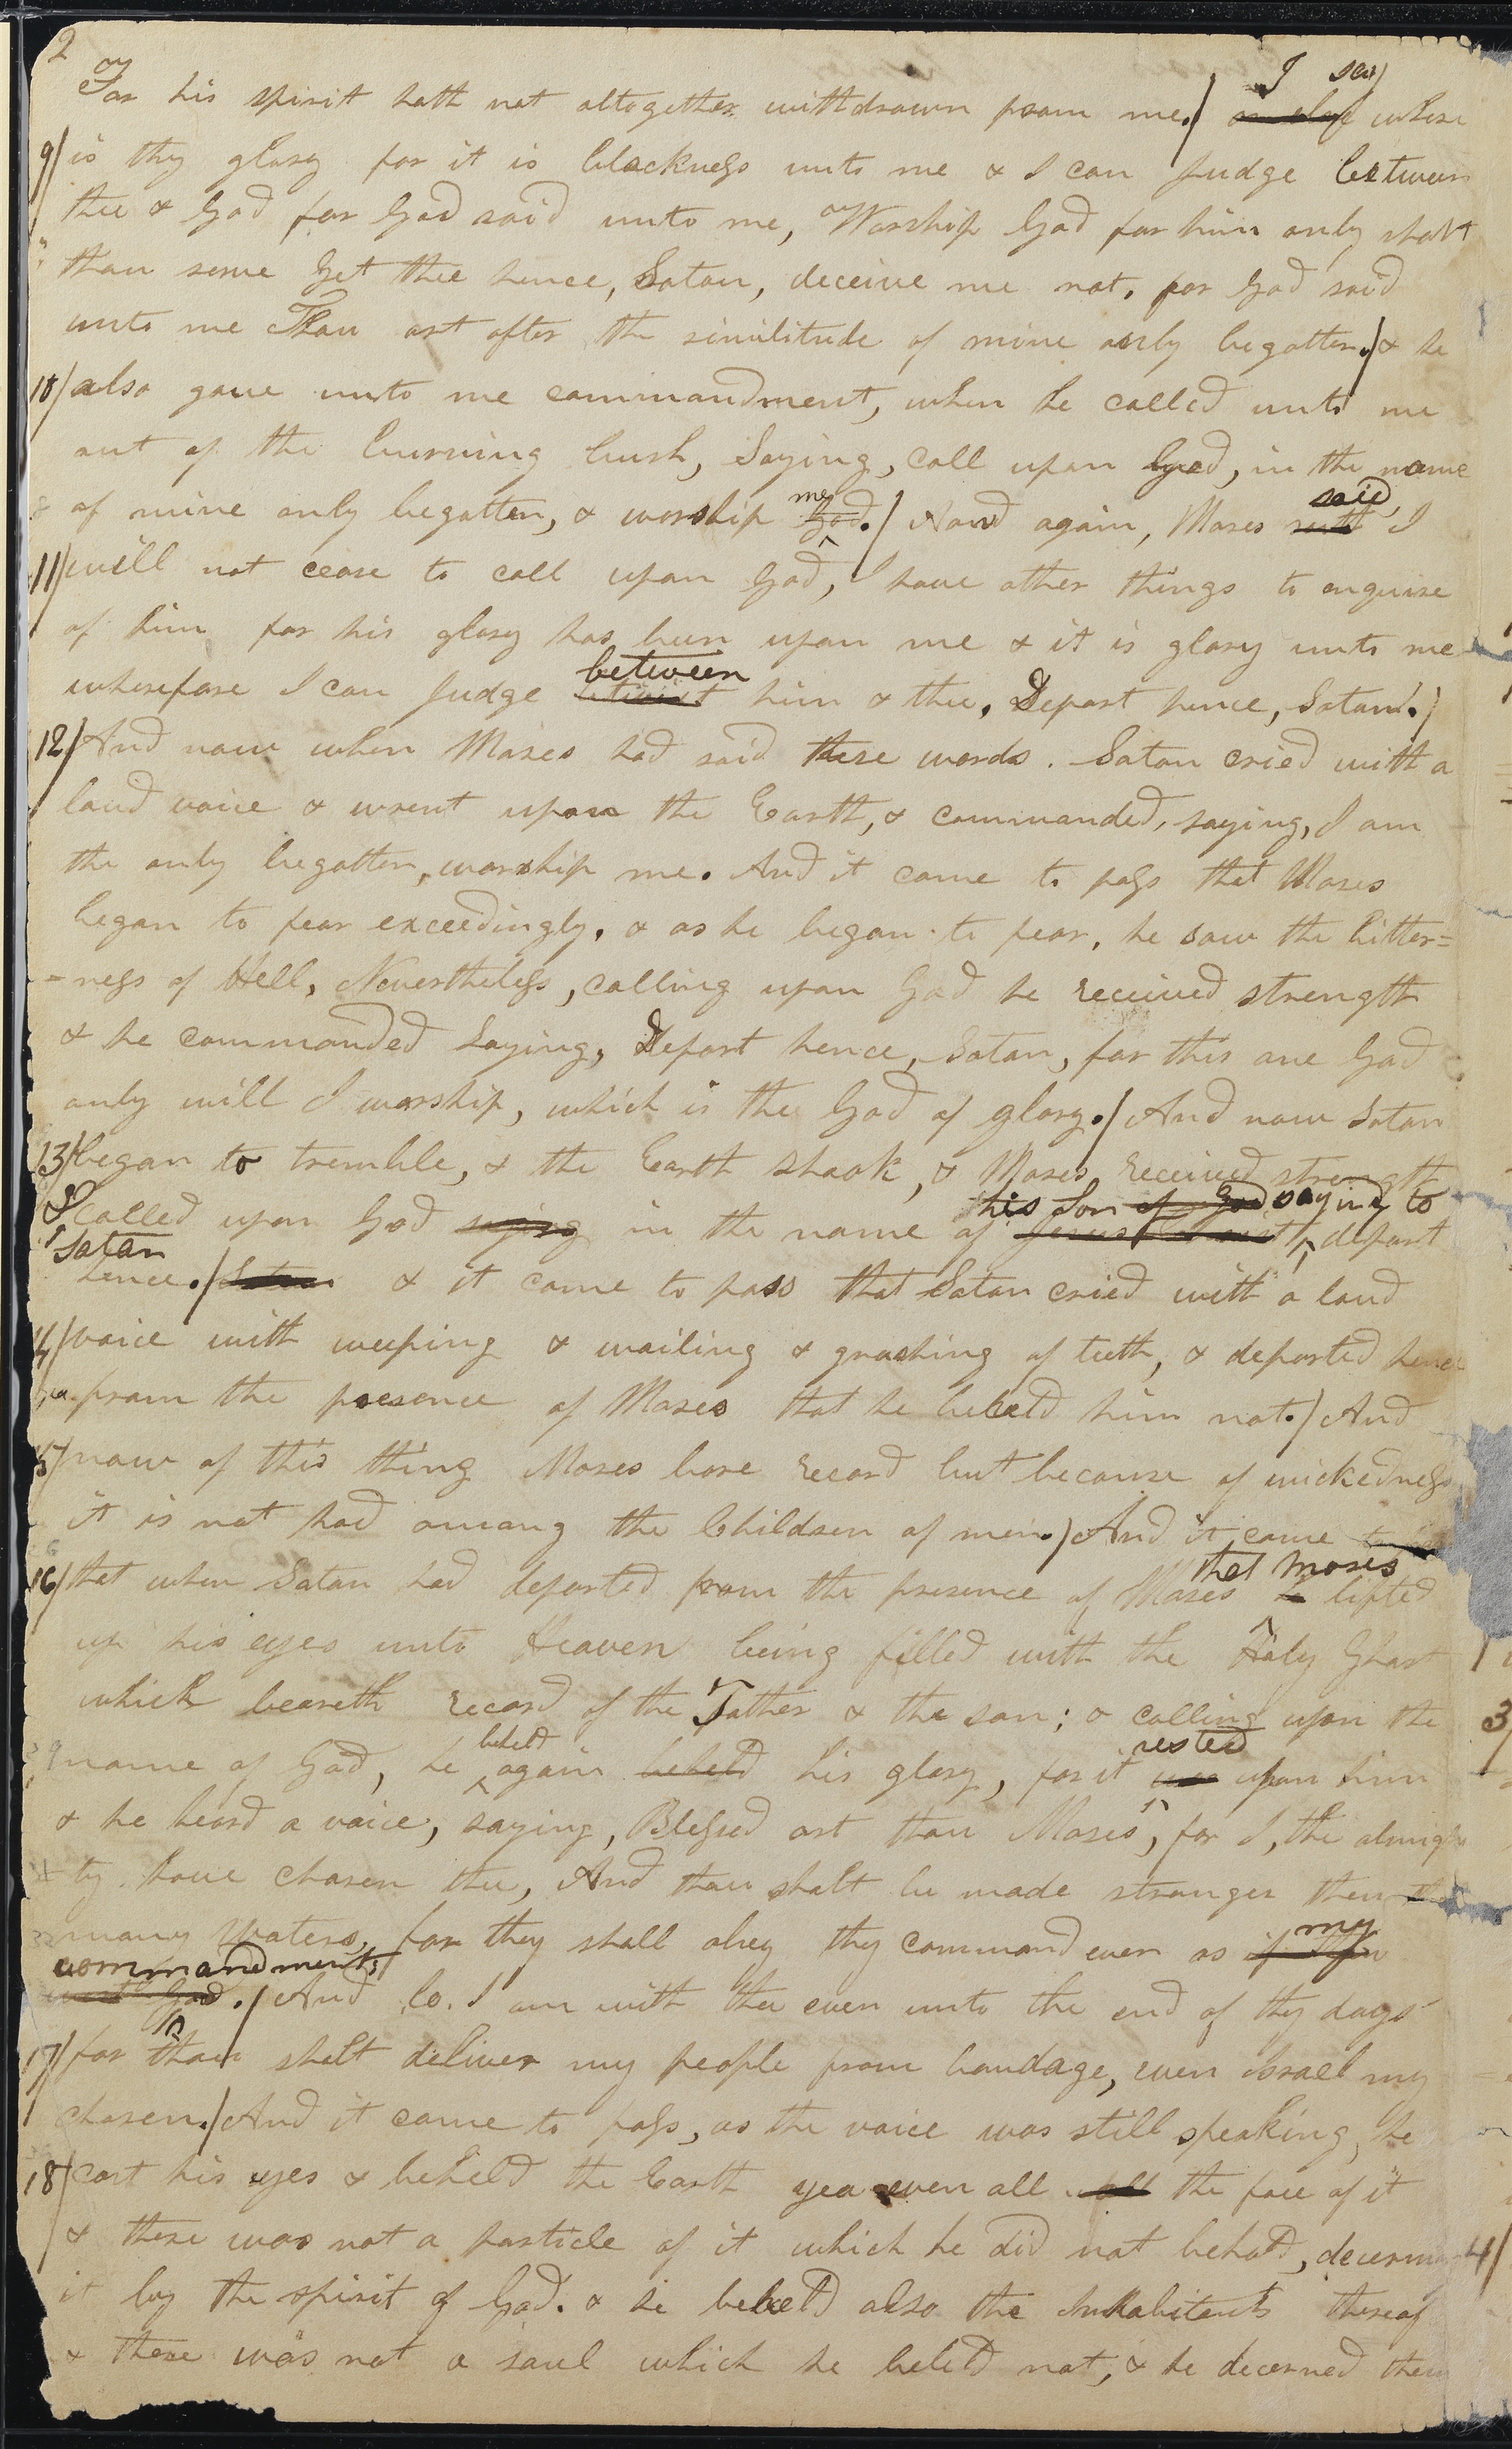 2
I say
For his spirit hath not altogether withdrawn from me./ or else where
9/ is thy glory for it is blackness unto me & I can Judge between
thee & God for God said unto me, Worship God for him only shalt
thou serve Get thee hence, Satan, deceive me not, for God said
unto me Thou art after the similitude of mine only begotten./ & he
10/ also gave unto me commandment, when he called unto me
out of the burning bush, Saying, call upon God, in the name
me said
of mine only begotten, & worship God./ And again, Moses saith I
11/ will not cease to call upon God, I have other things to enquire
of him for his glory has been upon me & it is glory unto me
between
wherefore I can Judge betwixt him & thee, Depart hence, Satan./
12/ And now when Moses had said these words. Satan cried with a
loud voice & wrent upon the Earth, & commanded, saying, I am
the only begotten, worship me. And it came to pass that Moses
began to fear exceedingly, & as he began to fear, he saw the bitter=
=ness of Hell, Nevertheless, calling upon God he received strength
& he commanded Saying, Depart hence, Satan, for this one God
only will I worship, which is the God of glory./ And now Satan
13/ began to tremble, & the Earth shook, & Moses received strength
his Son of God saying to
& called upon God saying in the name of Jesus Christ depart
Satan
hence./ Satan & it came to pass that Satan cried with a loud
14/ voice with weeping & wailing & gnashing of teeth, & departed hence
from the presence of Moses that he beheld him not./ And
15/ now of this thing Moses bore record but because of wickedness
it is not had among the Children of men./ And it came to
that Moses
16/ that when Satan had departed from the presence of Moses he lifted
up his eyes unto Heaven being filled with the Holy Ghost
which beareth record of the Father & the son; & calling upon the
beheld rested
name of God, he again beheld his glory, for it was upon him
& he heard a voice, saying, Blessed art thou Moses, for I, the almigh
ty have chosen thee, And thou shalt be made stronger then
my
many Waters, for they shall obey thy command even as if thou
commandments
wert God./ And lo. I am with thee even unto the end of thy days
17/ for thou shalt deliver my people from bondage, even Israel my
chosen./ And it came to pass, as the voice was still speaking, he
18/ cast his eyes & beheld the Earth yea even all all the face of it
& there was not a particle of it which he did not behold, decerning
it by the spirit of God. & he beheld also the Inhabitants thereof
& there was not a soul which he beheld not, & he decerned them
3/
4/